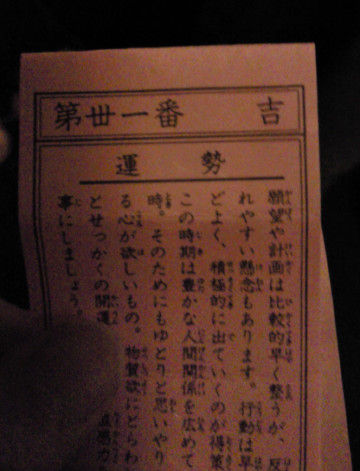 第丗一番　吉
運勢
願望や計画は比較的早く整うが、反
れやすい懸念もあります。行動は早
どよく、積極的に出ていくのが得策
この時期は豊かな人間関係を広めて
時。そのためにもゆとりと思いやり
る心が欲しいもの。物質欲にとらわ
とせっかくの開運 直感力
事にしましょう。